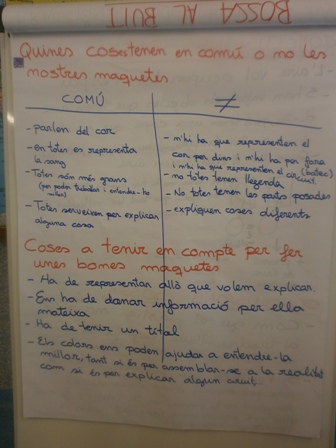 BOSSA AL BUIT
Quines coses tenen en comú o no les
nostres maquetes
COMÚ
- parlen del cor
- en totes es representa
la sang
- Totes són més grans
(per poder treballar i entendre-ho
millor)
- Totes serveixen per explicar
alguna cosa
≠
- n'hi ha que representen el
cor per dins i n'hi ha per fora
i n'hi ha que representen el circuit
- no totes tenen llegenda
- No totes tenen les parts posades
- expliquen coses diferents
Coses a tenir en compte per fer
unes bones maquetes
- Ha de representar allò que volem explicar.
- Ens ha de donar informació per ella
mateixa
- Ha de tenir un títol
- Els colors ens poden ajudar a entendre-la
millor, tant si és per assemblar-se a la realitat
com si és per explicar algun circuit.